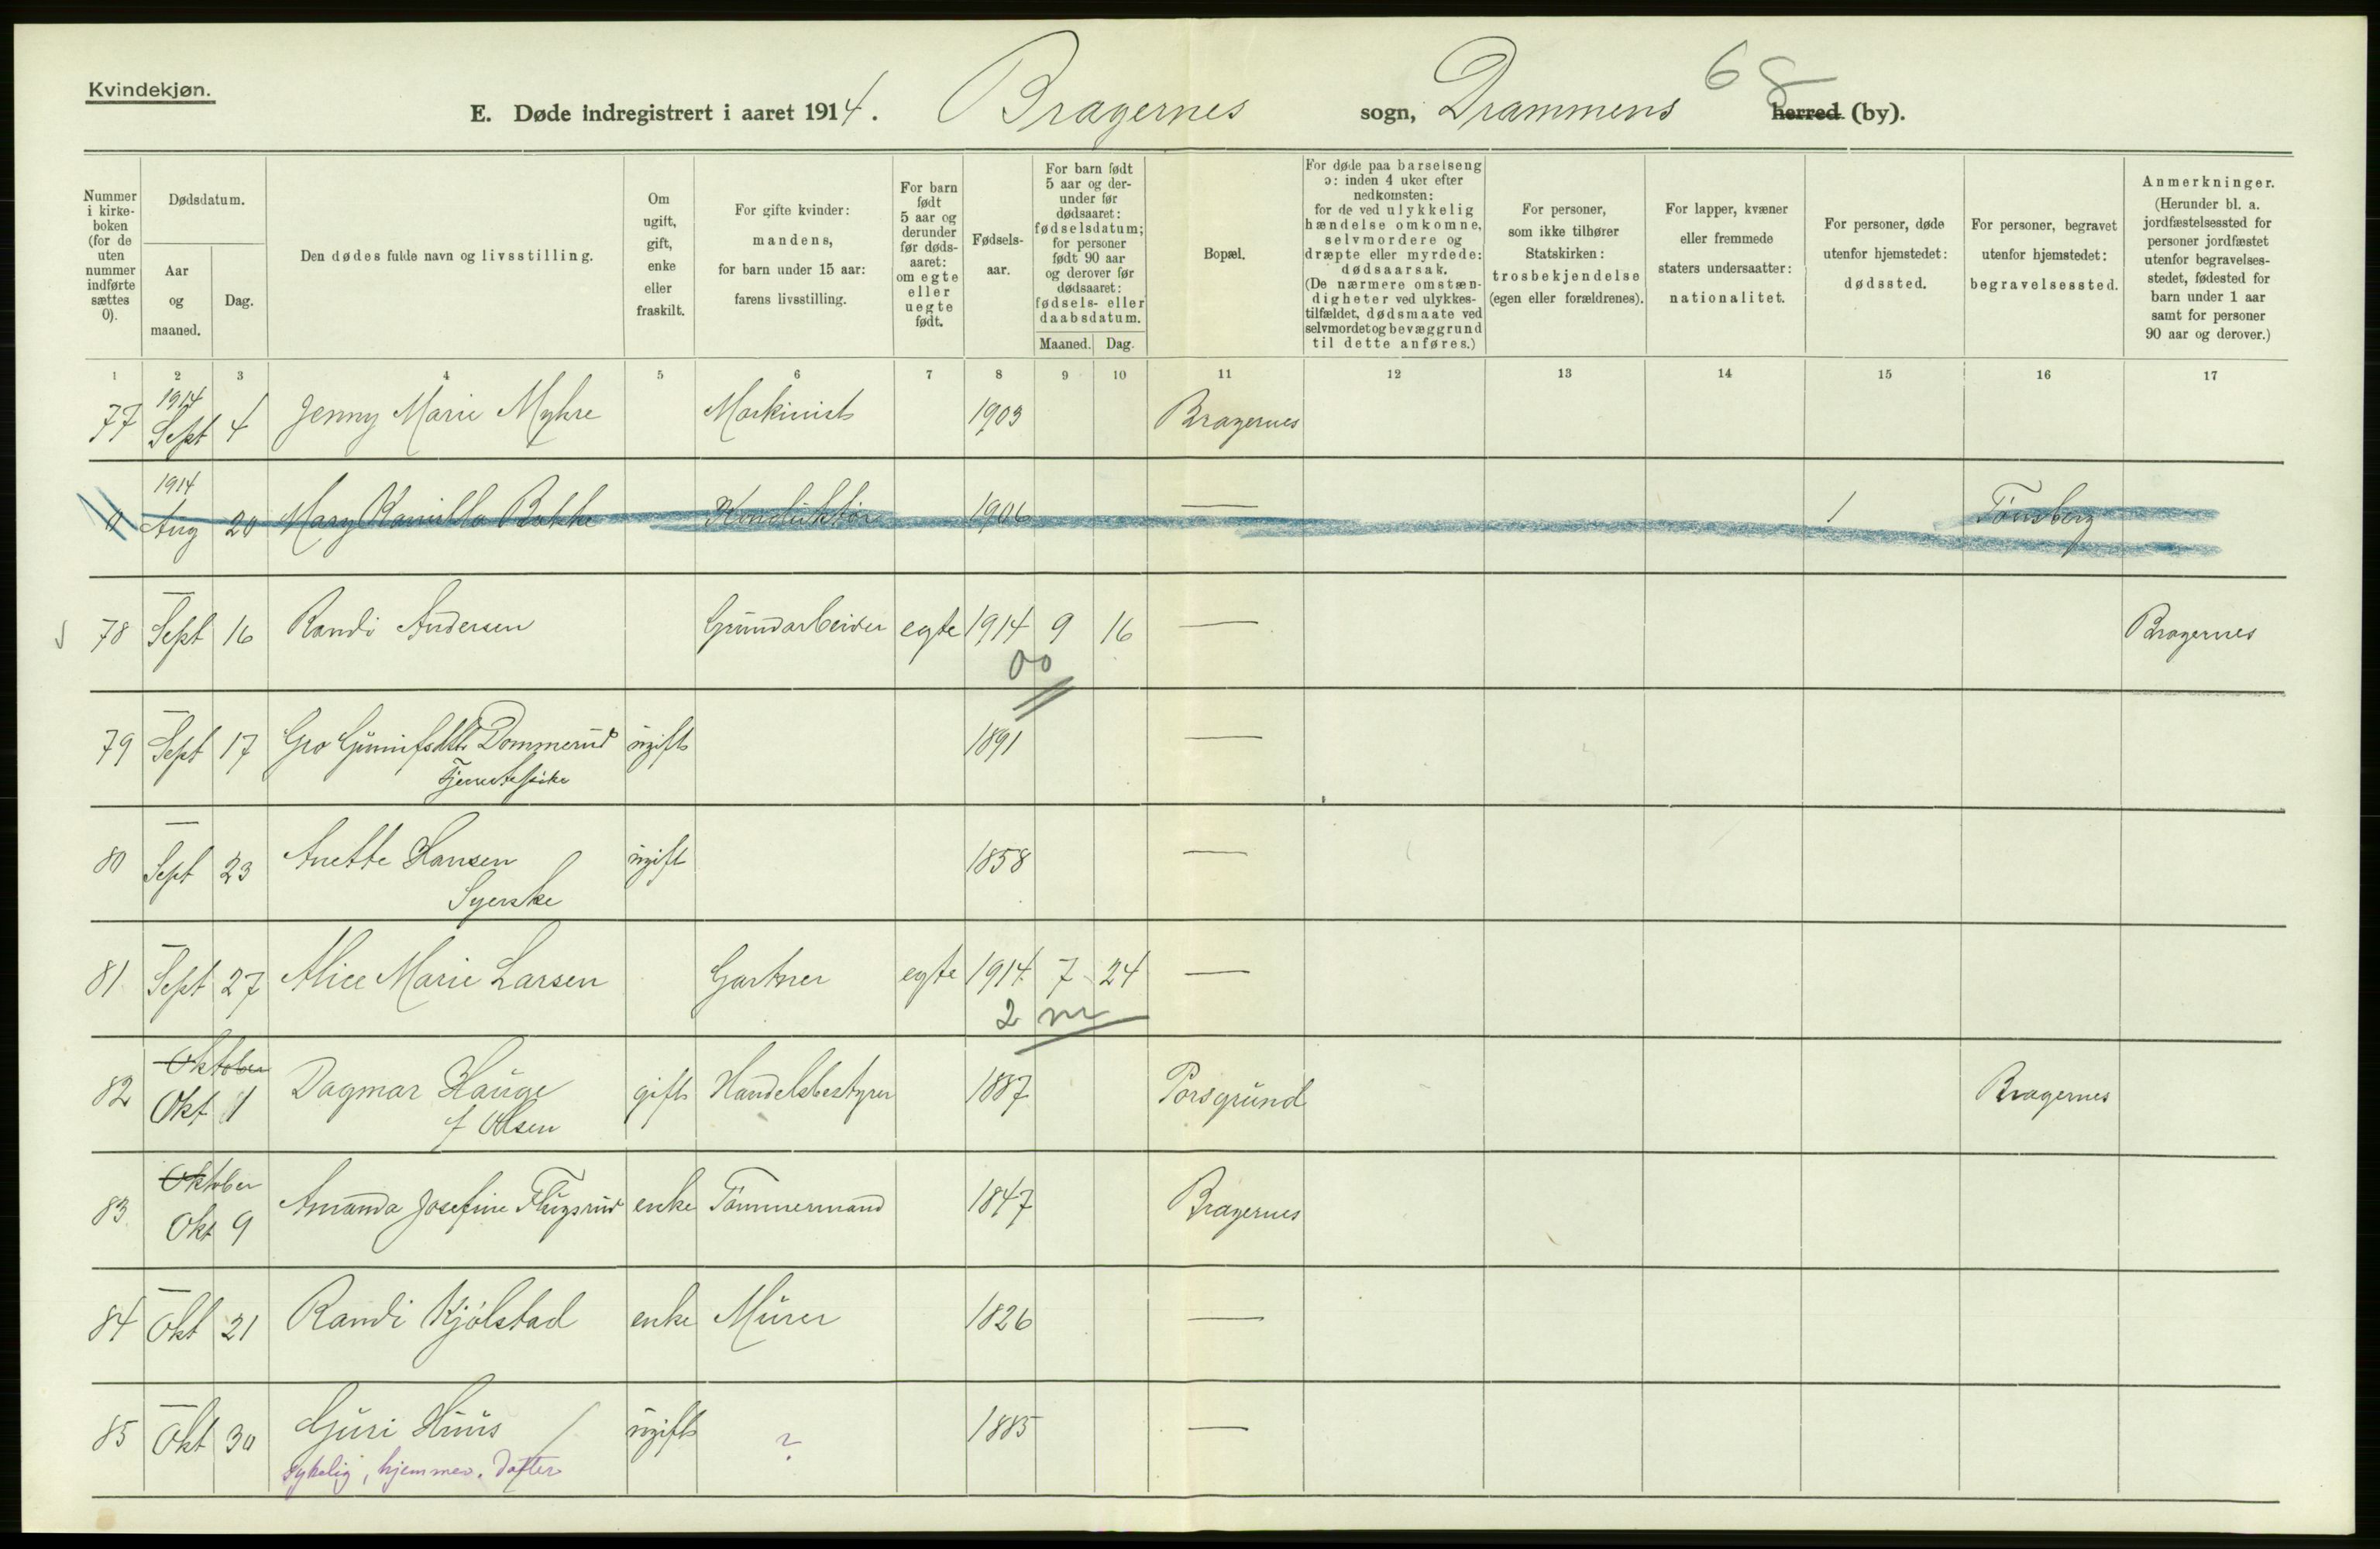 Kvindekjøn.
E. Døde indregistrert i aaret 1914. Bragernes sogn, Drammens herred (by).
68
Nummer i kirkeboken (for de uten nummer indførte sættes 0).
Dødsdatum.
Aar og maaned.
Dag.
Den dødes fulde navn og livsstilling.
Om ugift, gift, enke eller fraskilt.
For gifte kvinder: mandens, for barn under 15 aar: farens livsstilling.
For barn født 5 aar og derunder før dødsaaret: om egte eller uegte født.
Fødselsaar.
For barn født 5 aar og derunder før dødsaaret: fødselsdatum; for personer født 90 aar og derover før dødsaaret: fødsels- eller daabsdatum.
Maaned. Dag.
Bopæl.
For døde paa barselseng ɔ: inden 4 uker efter nedkomsten: for de ved ulykkelig hændelse omkomne, selvmordere og dræpte eller myrdede: dødsaarsak. (De nærmere omstændigheter ved ulykkestilfældet, dødsmaate ved selvmordet og bevæggrund til dette anføres.)
For personer, som ikke tilhører Statskirken: trosbekjendelse (egen eller forældrenes).
For lapper, kvæner eller fremmede staters undersaatter: nationalitet.
For personer, døde utenfor hjemstedet: dødssted.
For personer, begravet utenfor hjemstedet: begravelsessted.
Anmerkninger. (Herunder bl. a. jordfæstelsessted for personer jordfæstet utenfor begravelsesstedet, fødested for barn under 1 aar samt for personer 90 aar og derover.)
1 2 3 4 5 6 7 8 9 10 11 12 13 14 15 16 17
1914
77 Sept 4 Jenny Marie Myhre Maskinist 1903 Bragernes
1914
0 Aug 20 Mary Kamilla Bakke Konduktør 1906 — 1 Tønsberg
—
78 Sept 16 Randi Andersen Grundarbeider egte 1914 9 16 — Bragernes
00
—
79 Sept 17 Gro Gunnufsdtr Dommerud ugift 1891 —
Tjenestepike
—
80 Sept 23 Anette Hansen ugift 1858 —
Syerske
—
81 Sept 27 Alice Marie Larsen Gartner egte 1914 7 24 —
2 m
Oktober
82 Okt 1 Dagmar Hauge gift Handelsbestyrer 1887 Porsgrund Bragernes
f Olsen
Oktober
83 Okt 9 Amanda Josefine Flugsrud enke Tømmermand 1847 Bragernes
—
84 Okt 21 Randi Kjølstad enke Murer 1826 —
—
85 Okt 30 Guri Huus ugift ? 1885 —
sykelig, hjemmev. Datter